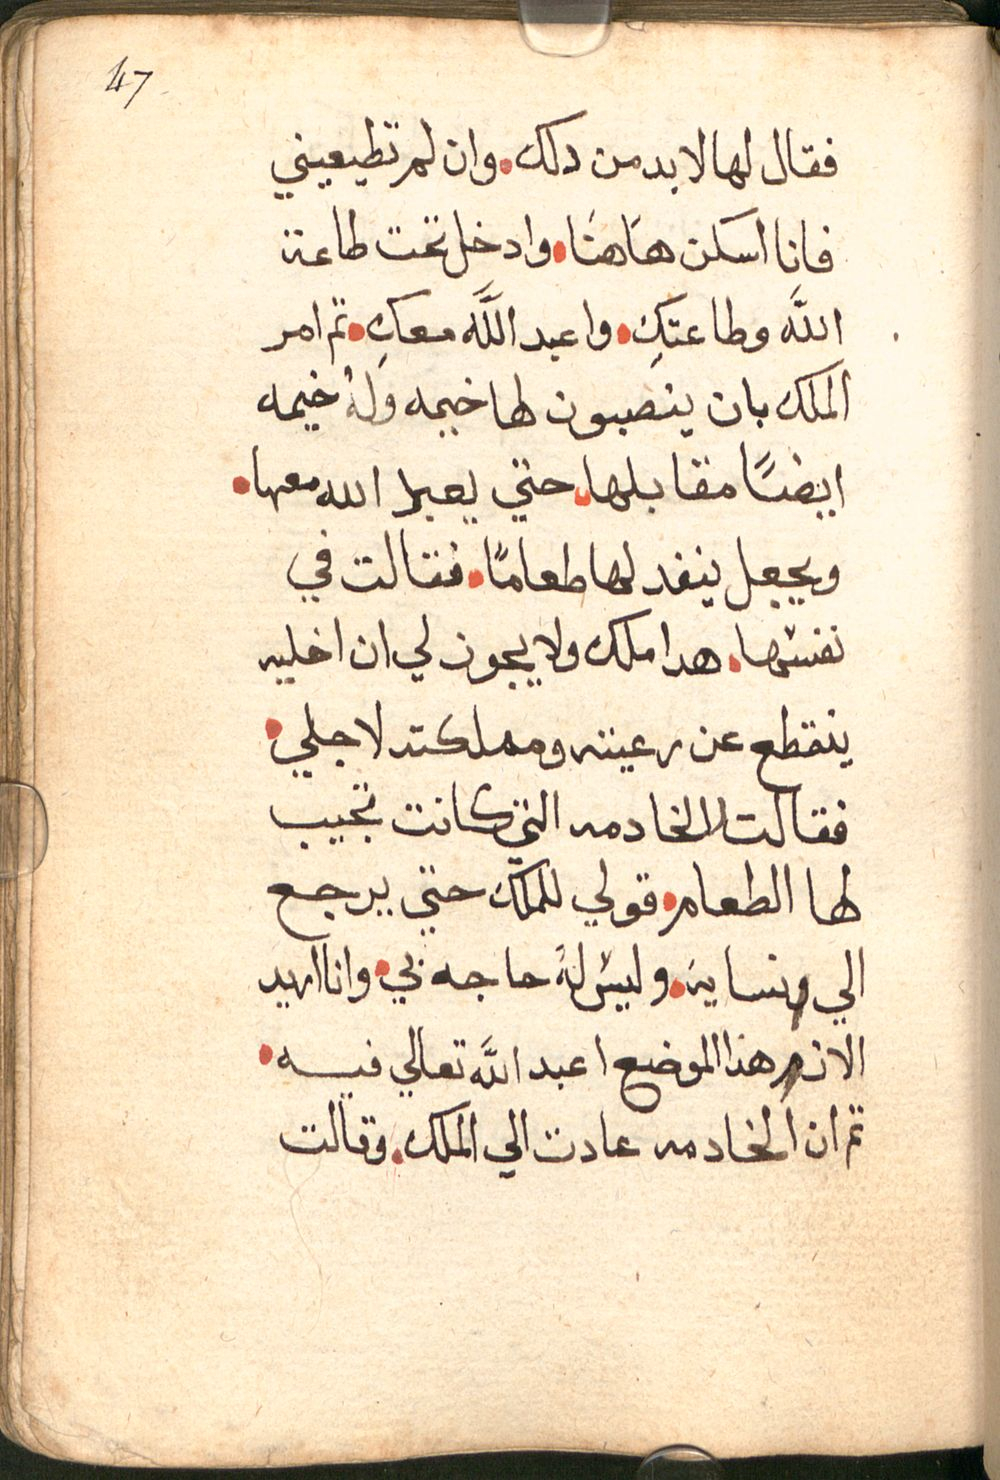 47
فقال لها لا بد من دلك. وان لم تطيعيني
فانا اسكن هاهنا. وادخل تحت طاعة
اللَّه وطاعتكِ. واعبد اللَّه معكِ. تم امر
الملك بان ينصبون لها خيمه ولهُ خيمه
ايضًا مقابلها. حتي يعبد الله معها.
ويجعل ينفد لها طعامًا. فقالت في
نفسها. هدا ملك ولا يجوز لي ان اخليه
ينقطع عن رعيته ومملكته لاجلي.
فقالت للخادمه التي كانت تجيب
لها الطعام. قولي للملك حتي يرجع
الي نسايه. وليس لهُ حاجه بي. وانا اريد
الازم هذا الموضع اعبد اللَّه تعالي فيه.
تم ان الخادمه عادت الي الملك. وقالت